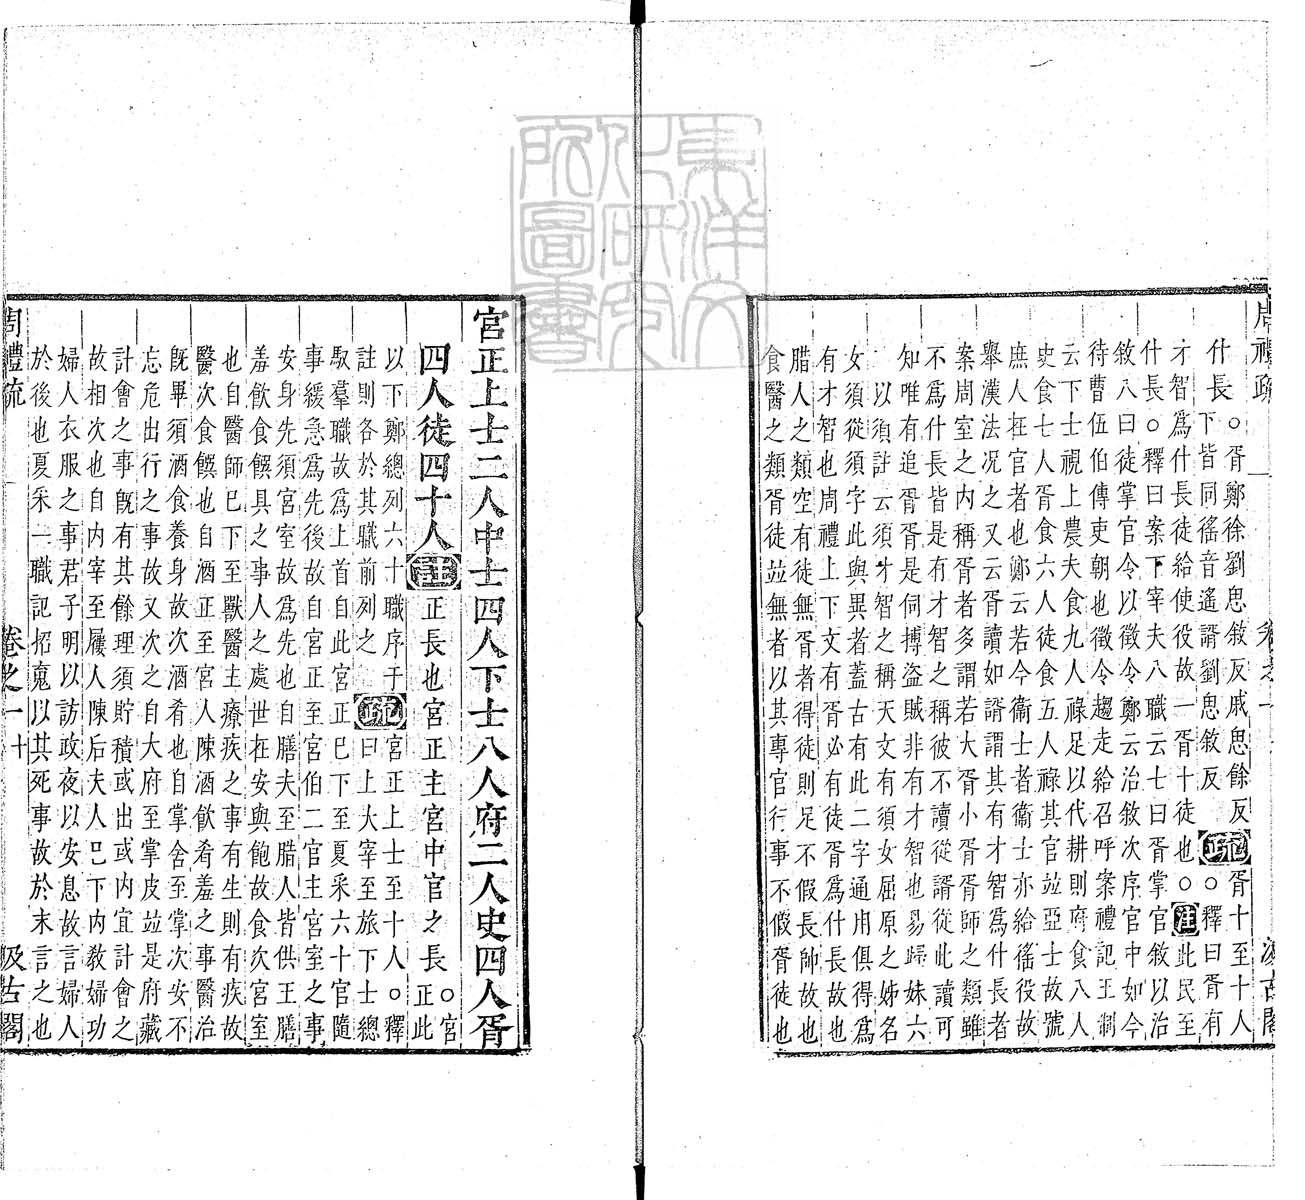 周禮疏 卷之一 汲古閣
什長 ○胥鄭徐劉思敘反戚思餘反 疏 胥十至十人
下皆同徭音遙諝劉思敘反 ○釋曰胥有
才智爲什長徒給使役故一胥十徒也○注此民至
什長○釋曰案下宰夫八職云七曰胥掌官敘以治
敘八曰徒掌官令以徵令鄭云治敘次序官中如今
待曹伍伯傳吏朝也徵令趨走給召呼案禮記王制
云下士視上農夫食九人祿足以代耕則府食八人
史食七人胥食六人徒食五人祿其官並亞士故號
庶人在官者也鄭云若今衞士者衞士亦給徭役故
舉漢法況之又云胥讀如諝謂其有才智爲什長者
案周室之內稱胥者多謂若大胥小胥胥師之類雖
不爲什長皆是有才智之稱彼不讀從諝從此讀可
知唯有追胥胥是伺搏盜賊非有才智也易歸妹六
以須註云須才智之稱天文有須女屈原之姊名
女須從須字此與異者蓋古有此二字通用俱得爲
有才智也周禮上下文有胥必有徒胥爲什長故也
腊人之類空有徒無胥者得徒則足不假長帥故也
食醫之類胥徒並無者以其專官行事不假胥徒也
宮正上士二人中士四人下士八人府二人史四人胥
四人徒四十人 註 正長也宮正主宮中官之長 ○宮
正此
以下鄭總列六十職序于 疏 宮正上士至十人○釋
註則各於其職前列之 曰上大宰至旅下士總
馭羣職故爲上首自此宮正已下至夏采六十官隨
事緩急爲先後故自宮正至宮伯二官主宮室之事
安身先須宮室故爲先也自膳夫至腊人皆供王膳
羞飲食饌具之事人之處世在安與飽故食次宮室
也自醫師已下至獸醫主療疾之事有生則有疾故
醫次食饌也自酒正至宮人陳酒飲肴羞之事醫治
旣畢須酒食養身故次酒肴也自掌舍至掌次安不
忘危出行之事故又次之自大府至掌皮並是府藏
計會之事旣有其餘理須貯積或出或內宜計會之
故相次也自內宰至屨人陳后夫人已下內敎婦功
婦人衣服之事君子明以訪政夜以安息故言婦人
於後也夏采一職記招䰟以其死事故於末言之也
周禮疏 卷之一 十 汲古閣
東洋文化研究所圖書